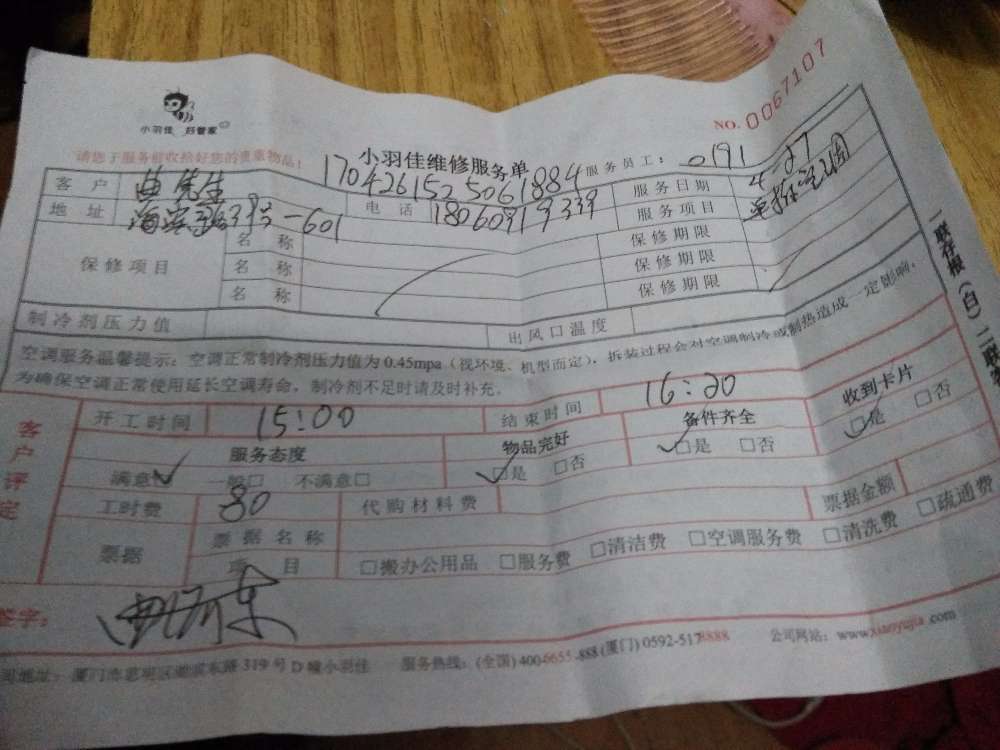 小羽佳 好管家
NO. 0067107
请您于服务前收拾好您的贵重物品!
小羽佳维修服务单
服务员工: 0191
1704261525061884
客户 曲先生 服务日期 4-27
地址 39号-601 电话 18060919339 服务项目
保修项目 名称 保修期限
名称 保修期限
名称 保修期限
制冷剂压力值 出风口温度
空调服务温馨提示: 空调正常制冷剂压力值为0.45mpa (视环境、机型而定), 拆装过程会对空调制冷或制热造成一定影响,
为确保空调正常使用延长空调寿命, 制冷剂不足时请及时补充。
客户评定
开工时间 15:00 结束时间 16:20
服务态度 物品完好 备件齐全 收到卡片
满意☑ 一般□ 不满意□ ☑是 □否 ☑是 □否 ☑是 □否
工时费 80 代购材料费 票据金额
票据 票据名称
项目 □搬办公用品 □服务费 □清洁费 □空调服务费 □清洗费 □疏通费
签字:
司地址: 厦门市思明区湖滨东路319号D幢小羽佳 服务热线: (全国) 400-6655-888 (厦门) 0592-5178888 公司网站: www.xiaoyujia.com
一联存根(白) 二联